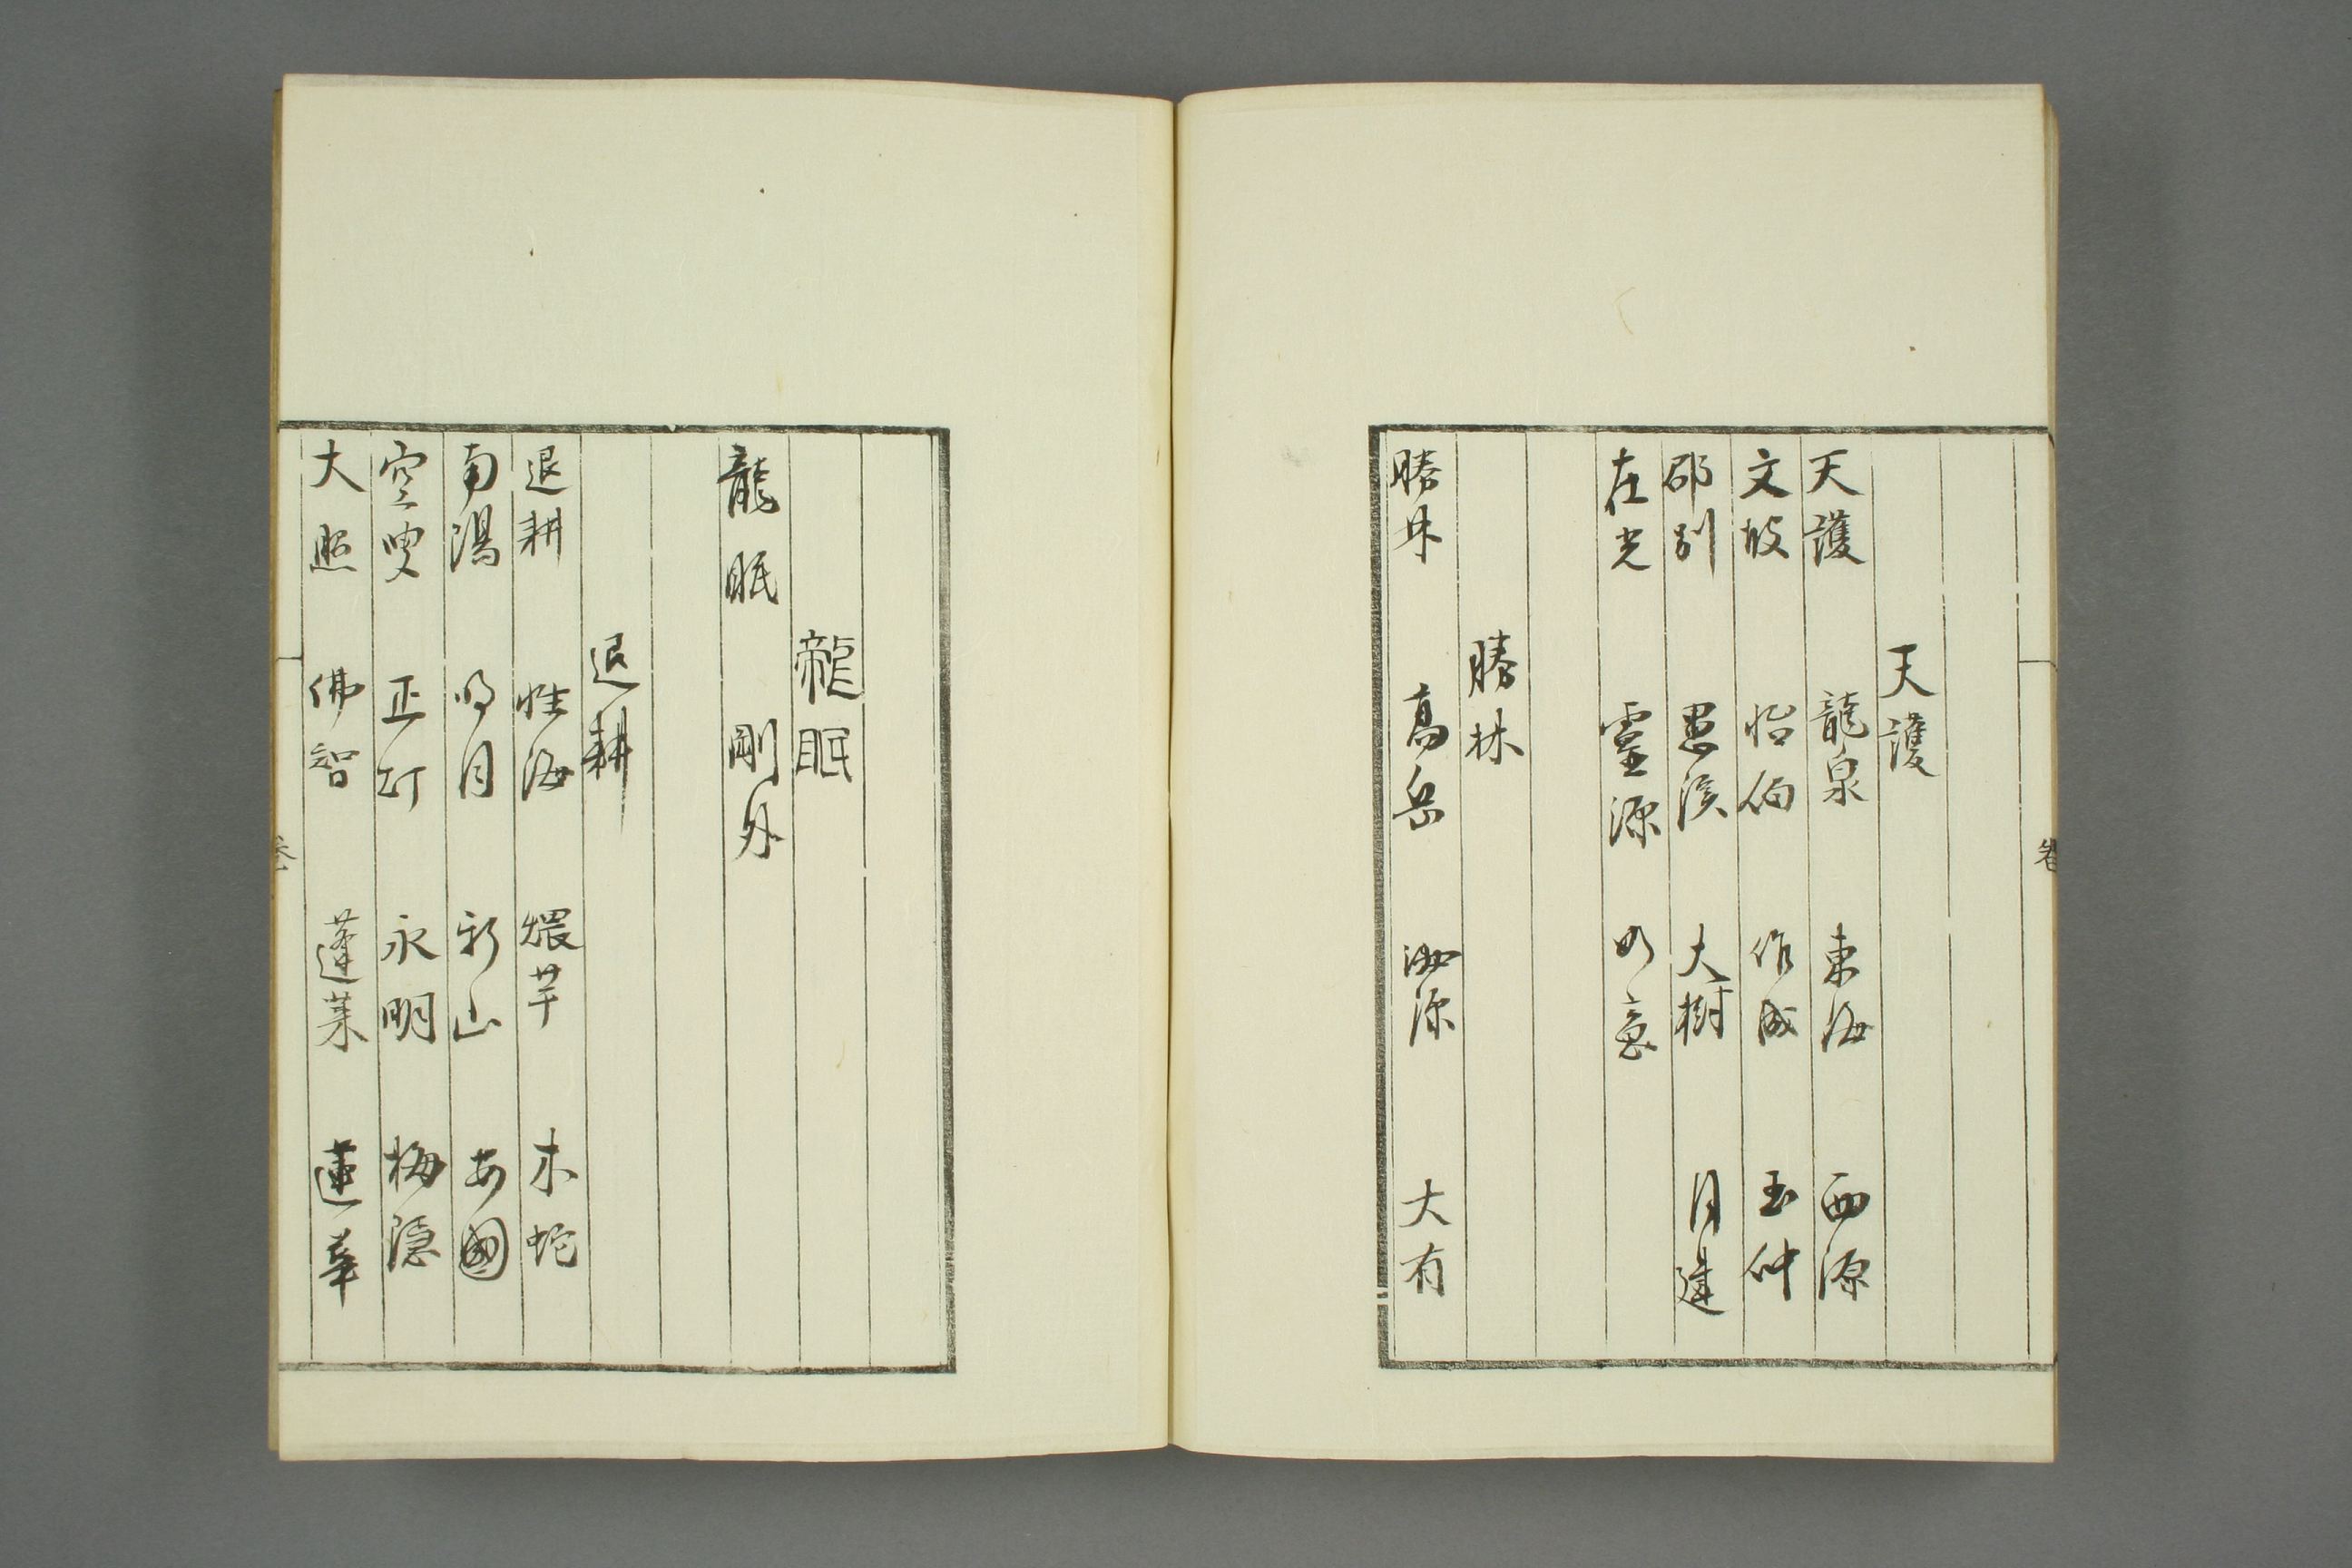 天護
天護 龍泉 東海 西源
文坡 怡伯 作成 玉仲
邵別 愚溪 大樹 月建
在光 靈源 如意
勝林
勝林 高岳 海源 大有
龍眠
龍眠 剛外
退耕
退耕 性海 煨芋 木蛇
南陽 明月 新山 安國
空叟 正訂 永明 梅隱
大照 佛智 蓬莱 蓮華